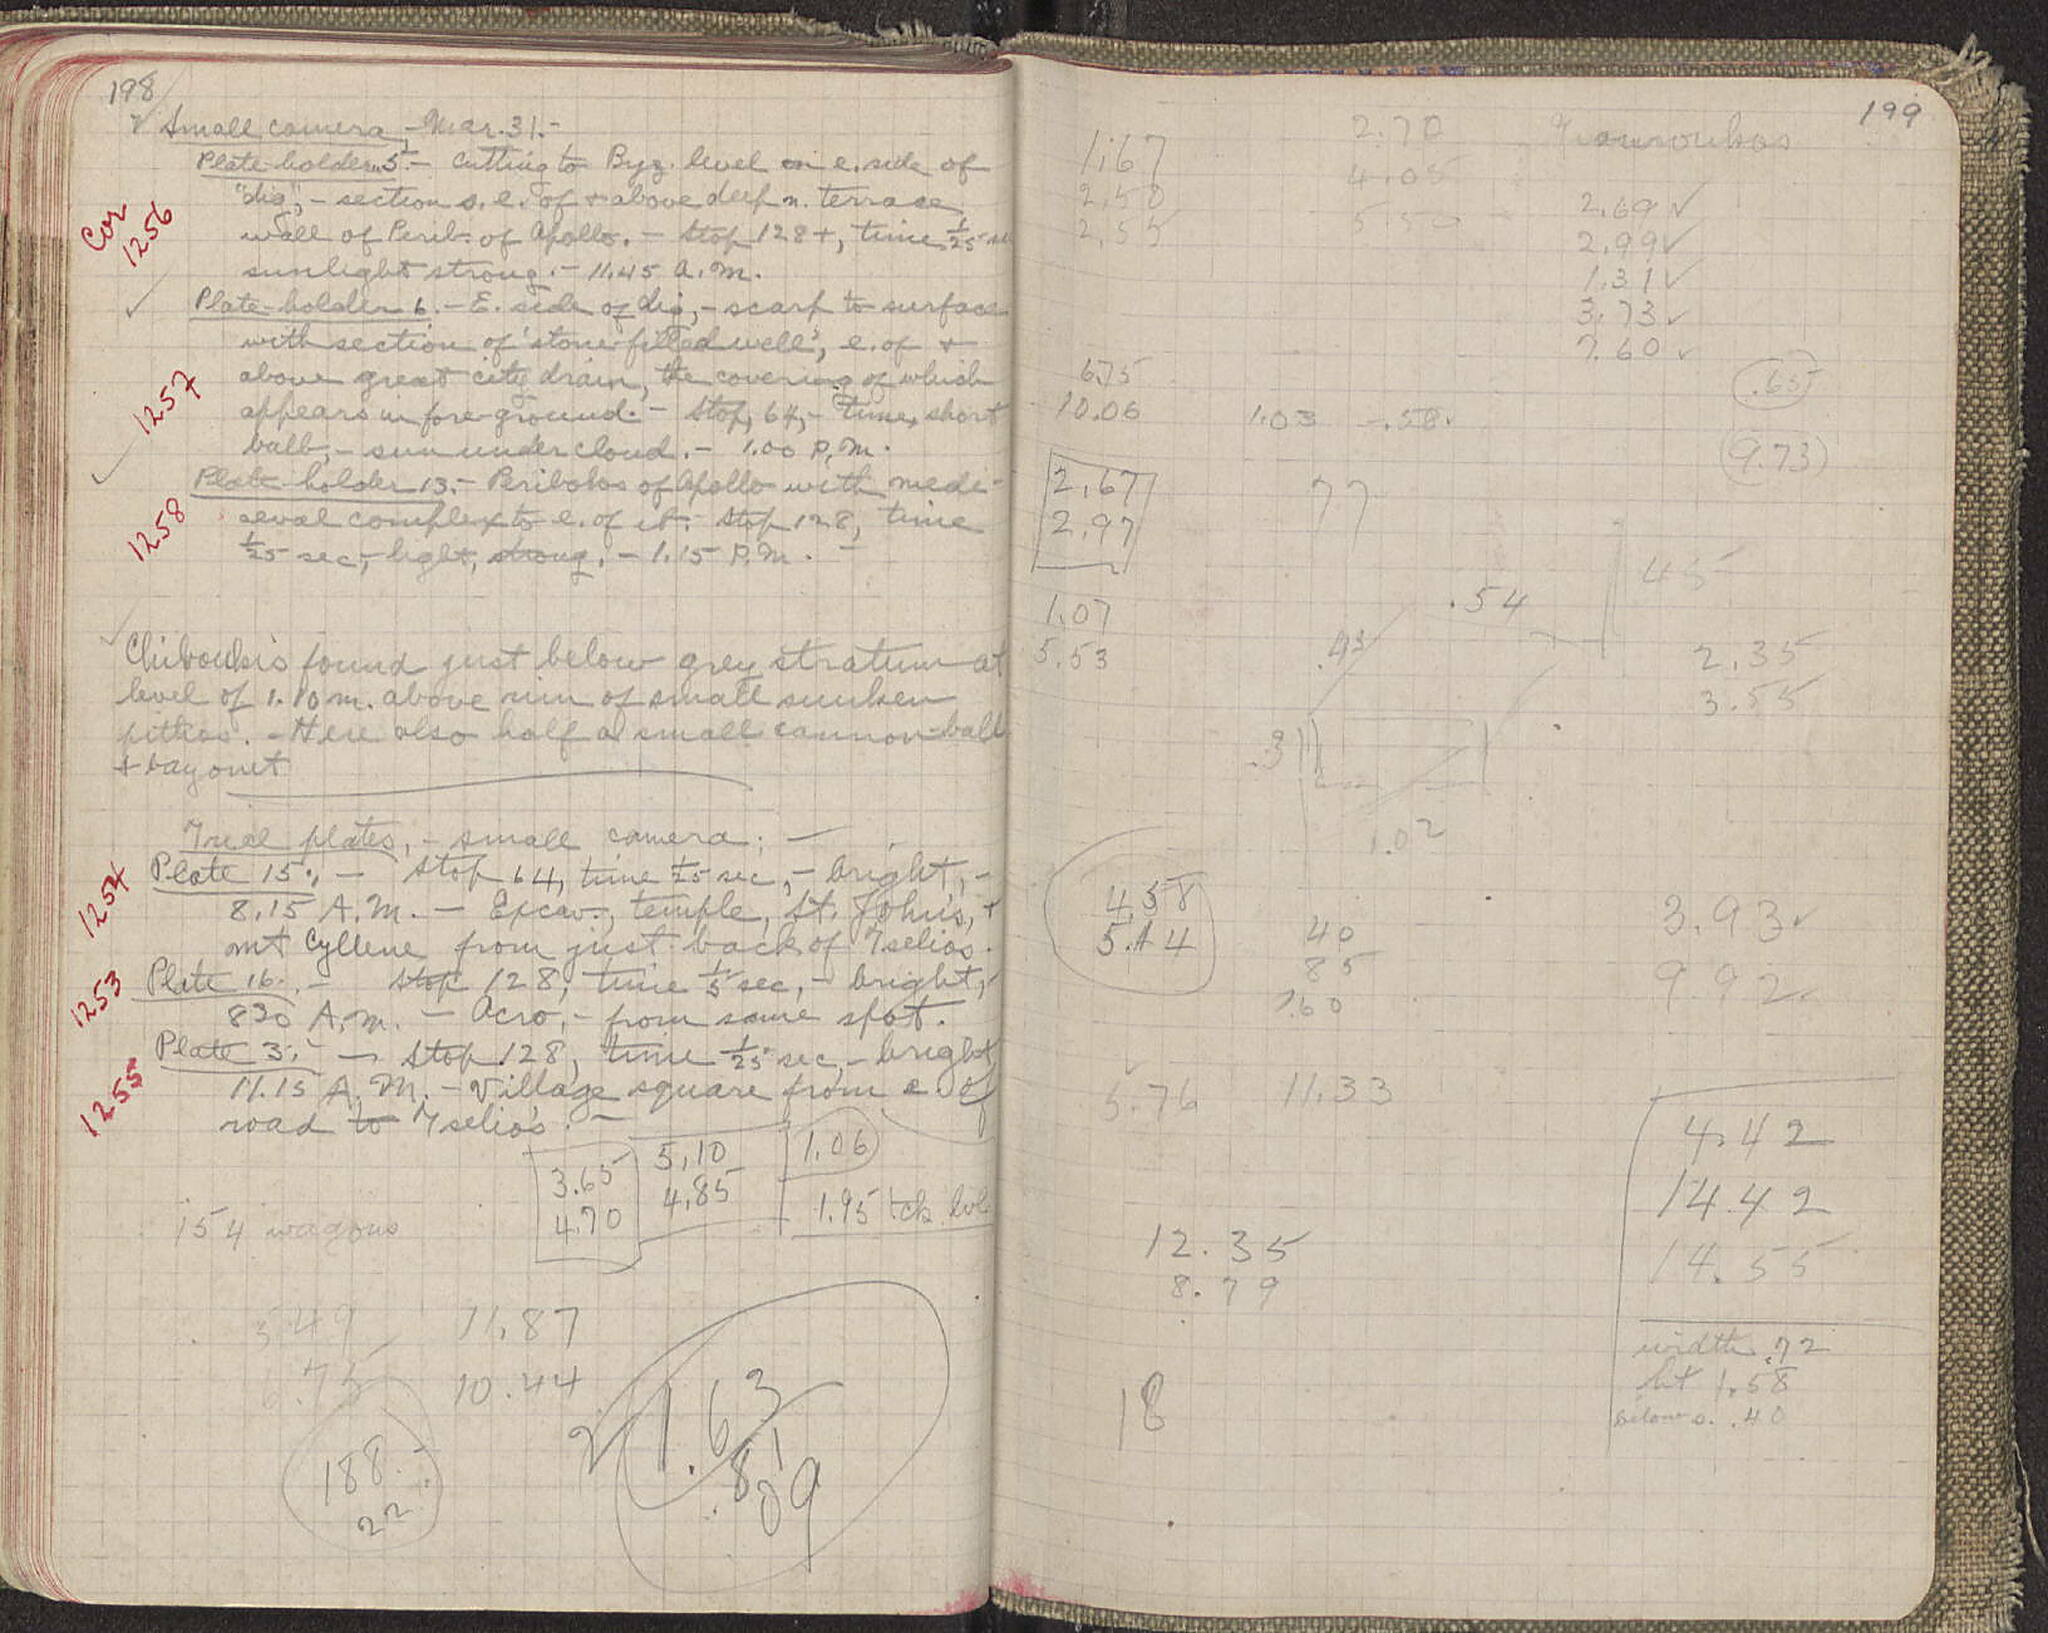 198
Small camera, - Mar. 31. -
Plate-holder 5. - Cutting to Byz. level on e. side of
"dig", - section s. e. of + above deep n. terrace
wall of Perib. of Apollo. - Stop 128+, time 1/25 sec
sunlight strong. - 11.45 A.M.
Cor
1256
Plate-holder 6. - E. side of dig, - scarp to surface
with section of 'stone-filled well', e. of +
above great city drain, the covering of which
appears in fore-ground. - Stop, 64, - time, short
balb, - sun under cloud. - 1.00 P.M.
1257
Plate-holder 13. - Peribolos of Apollo with medi-
aeval complex to e. of it. - Stop 128, time
1/25 sec, - light, strong, - 1.15 P.M. -
1258
Chiboukis found just below grey stratum at
level of 1.10 m. above rim of small sunken
pithos. - Here also half a small cannon-ball
+ bayonet
Trial plates, - small camera; -
Plate 15., - Stop 64, time 1/25 sec, - bright, -
8.15 A.M. - Excav., temple, St. John's, +
Mt Cyllene from just back of Tselios.
1254
Plate 16. - Stop 128, time 1/5 sec, - bright, -
830 A.M. - Acro, - from same spot.
1253
Plate 3. - Stop 128, time 1/25 sec, - bright,
11.15 A.M. - Village square from e. of
road to Tselio's. -
1255
3.65
4.70
5.10
4.85
1.06
1.95
154 wagons
5.49
6.75
11.87
10.44
188
22
2
1.63
.81
09
199
1.67
2.50
2.55
2.70
4.05
5.50
2.69 ✓
2.99 ✓
1.31 ✓
3.73 ✓
7.60 ✓
.65
9.73
6.75
10.06
1.03 - .58
2.67
2.97
77
1.07
5.53
.54
45
.43
2.35
3.55
.31
1.02
4.58
5.14
40
85
1.60
3.93 ✓
9.92
5.76
11.33
4.42
14.42
14.55
12.35
8.79
width .72
ht 1.58
below s. .40
18